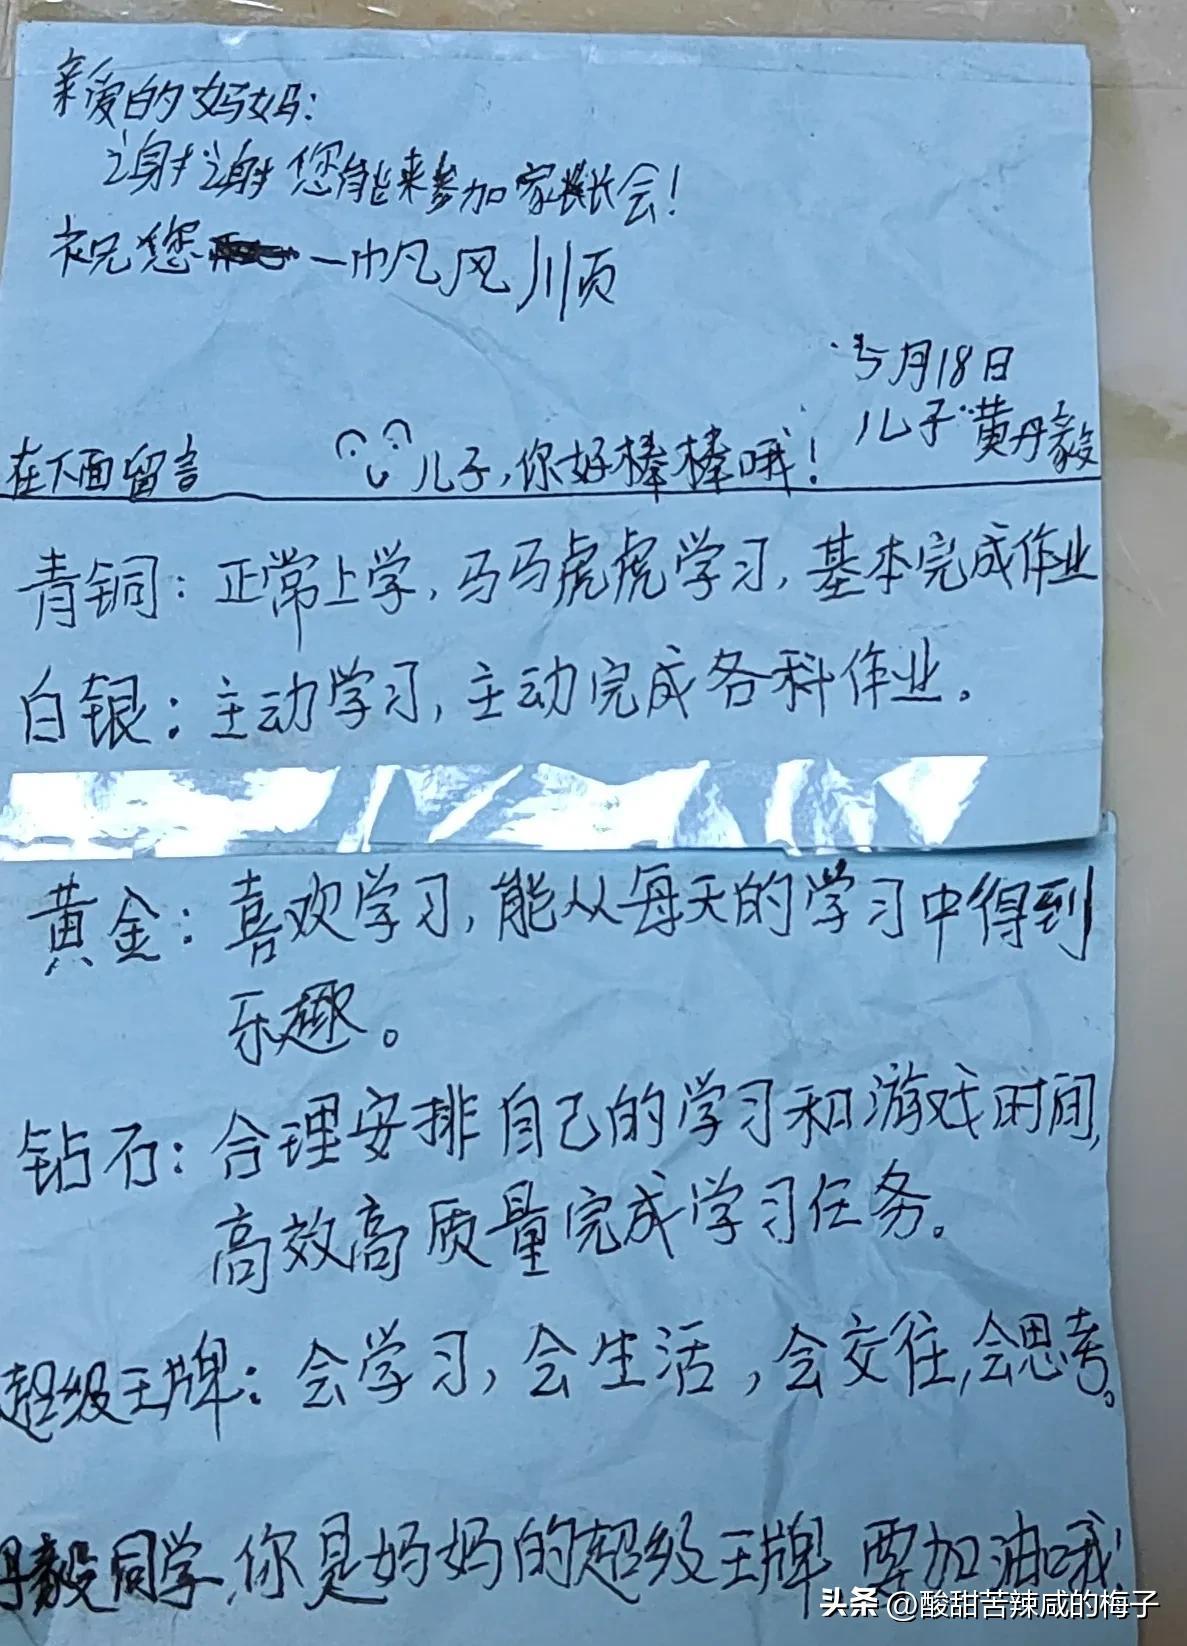 亲爱的妈妈：
谢谢您能来参加家长会！
祝您一帆风顺
5月18日
儿子：黄丹毅
在下面留言
儿子，你好棒棒哦！
青铜：正常上学，马马虎虎学习，基本完成作业
白银：主动学习，主动完成各科作业。
黄金：喜欢学习，能从每天的学习中得到
乐趣。
钻石：合理安排自己的学习和游戏时间，
高效高质量完成学习任务。
超级王牌：会学习，会生活，会交往，会思考。
丹毅同学，你是妈妈的超级王牌 要加油哦！
头条 @酸甜苦辣咸的梅子